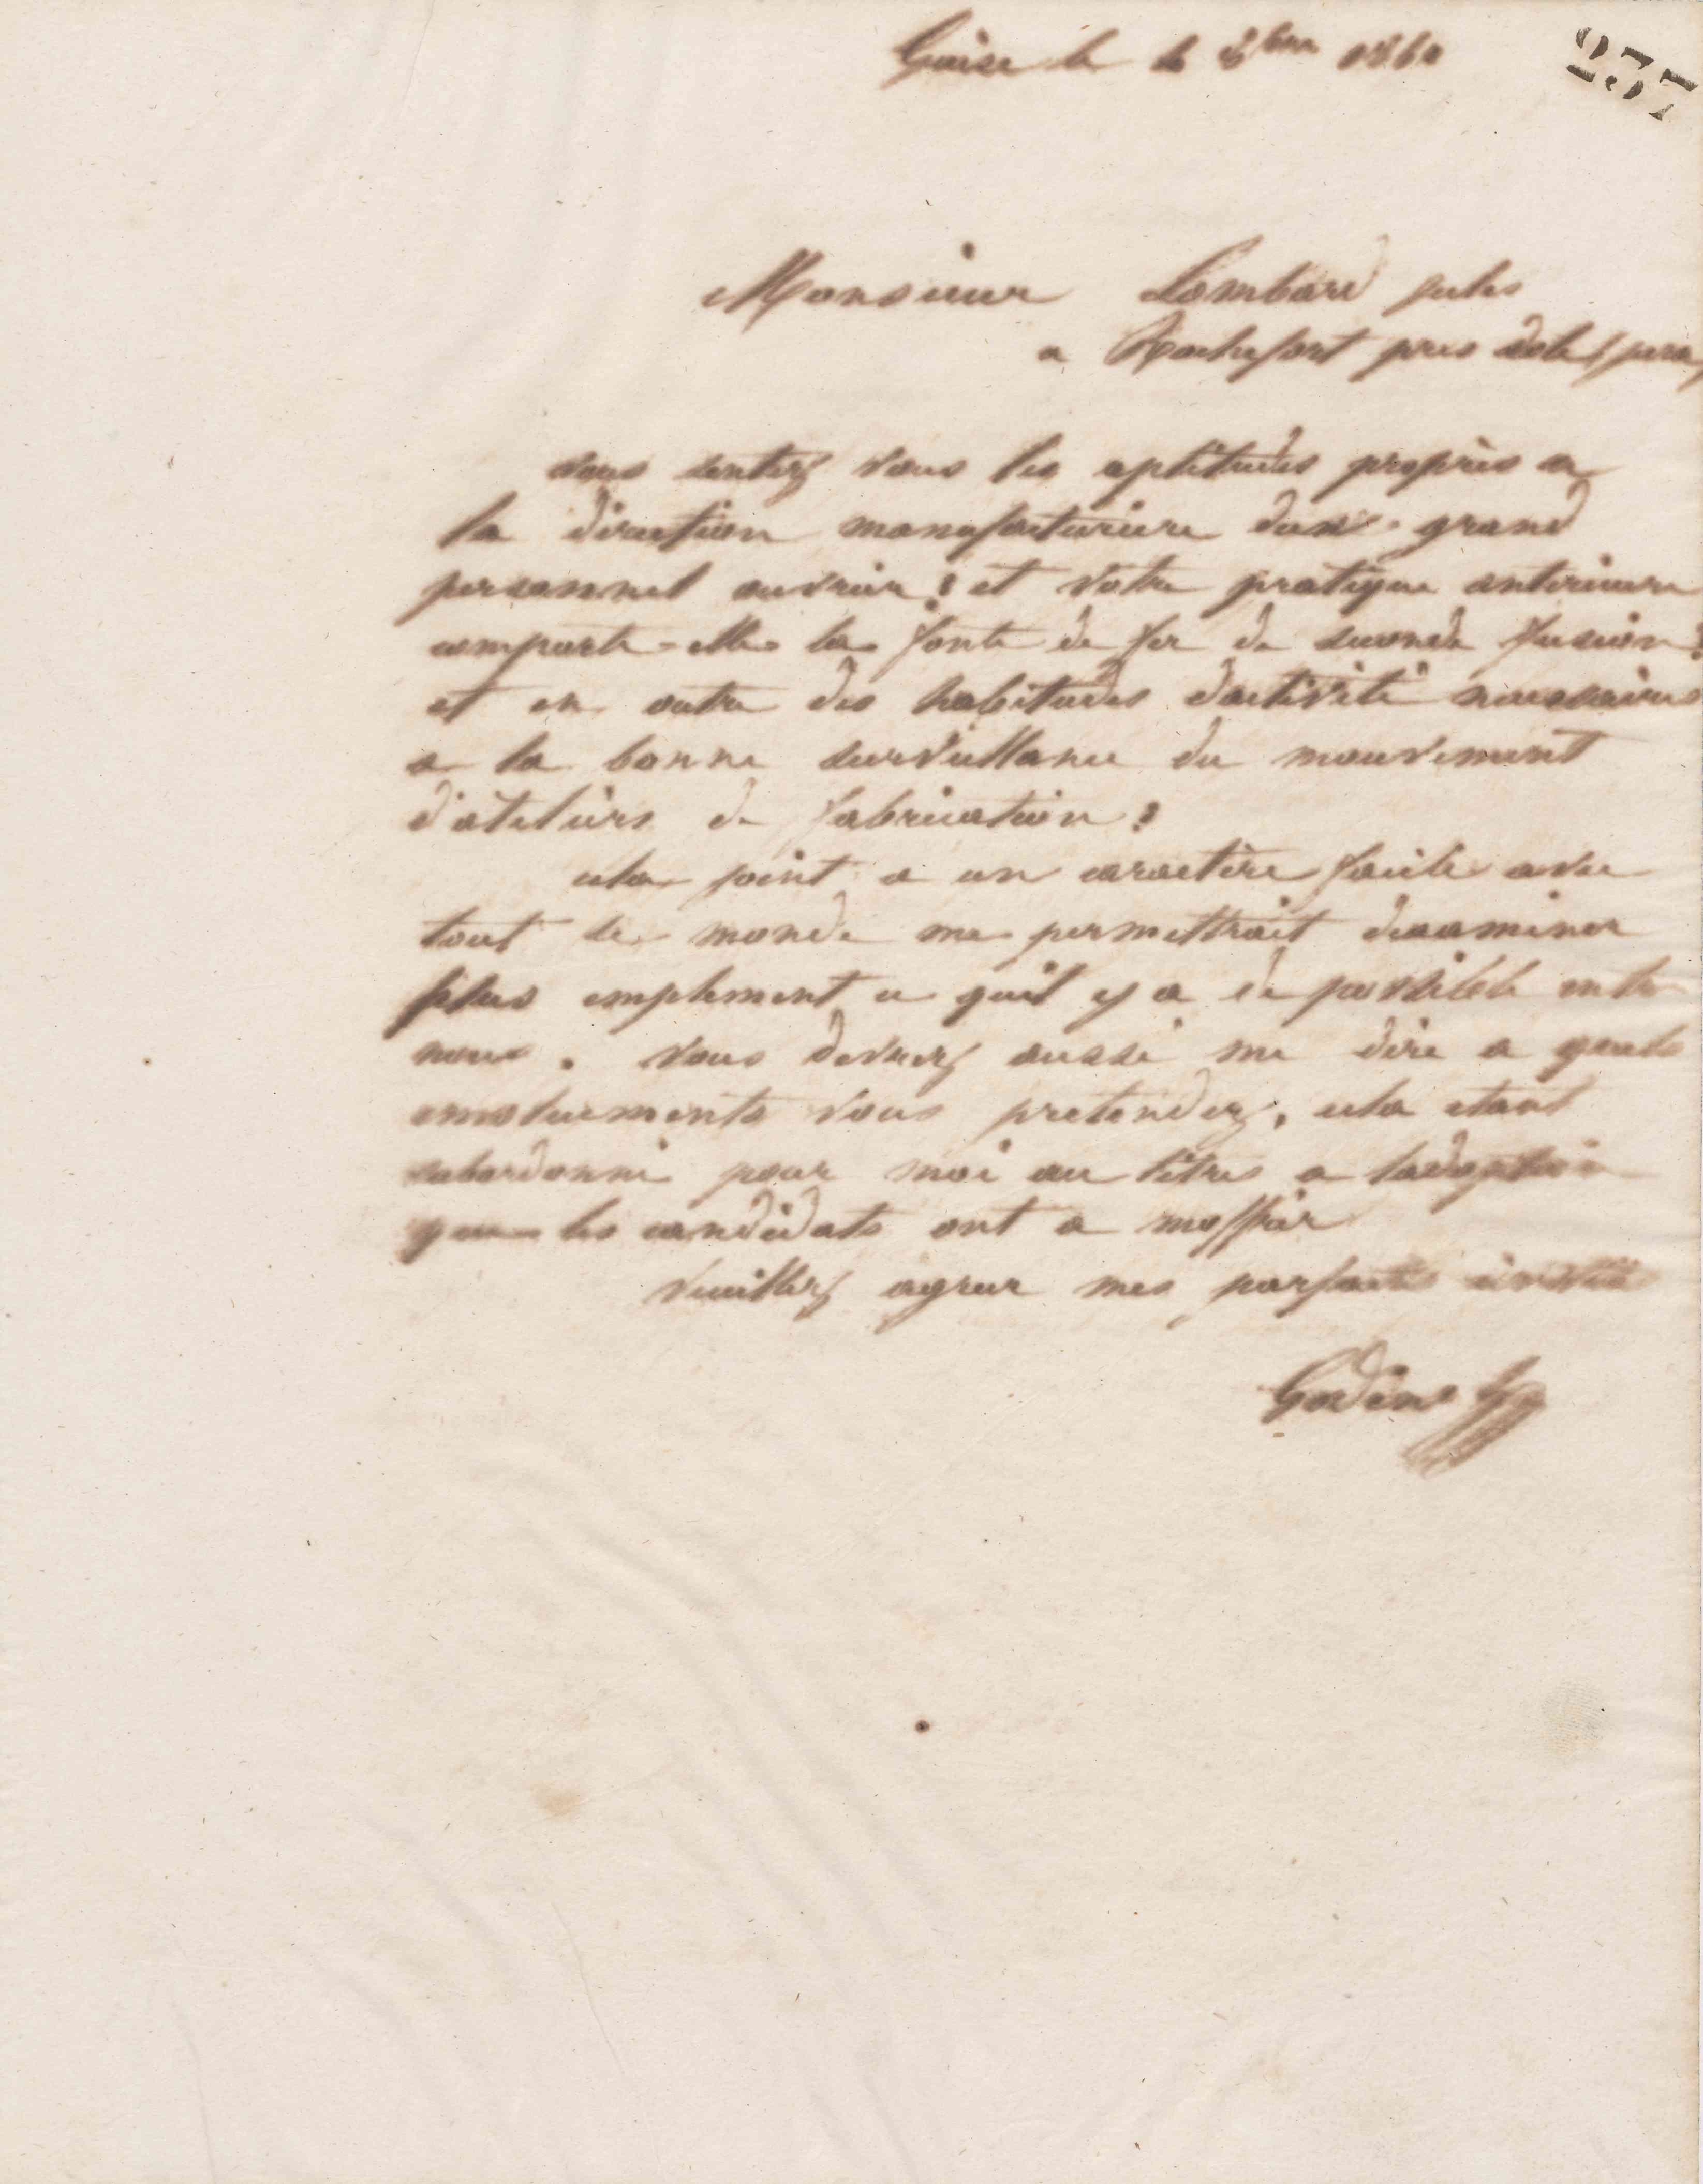 Guise le 8bre 186
237
Monsieur Lombard jules
a Rochefort pres dole (jura)
vous sentez vous les aptitudes propres a
la direction manufacturiere dun grand
personnel ouvrier? et votre pratique anterieure
comporte-elle la fonte de fer de seconde fusion?
et en outre des habitudes dactivité necessaires
a la bonne surveillance du mouvement
d'ateliers de fabrication?
cela joint a un caractère facile avec
tout le monde me permettrait dexaminer
plus emplement ce quil y a de possible entre
nous. vous devrez aussi me dire a quels
emoluements vous pretendez, cela etant
subordonné pour moi au titres a ladoption
que les candidats ont a moffrir
Veuillez agreer mes parfaites civilités
Godin